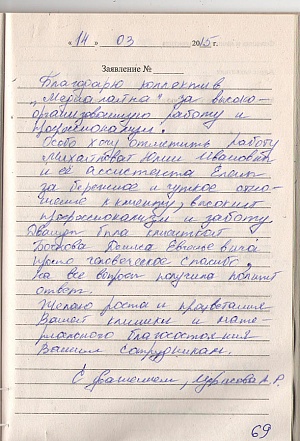 « 14 » 03 2015 г.
Заявление №
Благодарю коллектив
за высоко-
организованную работу и
профессионализм.
Особо хочу отметить работу
Юлии Ивановны
и её ассистента Елены
за бережное и чуткое отно-
шение к клиенту, высокий
профессионализм и заботу.
была
Евгеньевича
человеческое спасибо.
На все вопросы получила полный
ответ.
Желаю роста и процветания
Вашей клиники и мате-
риального благосостояния
Вашим сотрудникам.
С уважением,
69